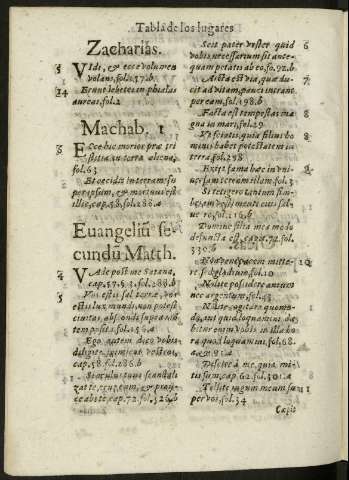 Tabla de los lugares
Zacharias.
5 Vidi, & ecce volumen
volans, fol. 57. b
14 Erunt lebetes in phialas
aureas, fol. 2
Machab. 1
3 Ecce hic morior præ tri
stitia in terra aliena,
fol. 63
Et cecidit in terram su
per ipsum, & mortuus est
illic, cap. 58. fol. 286. a
Euangeliũ se
cundũ Matth.
Vade post me Satana,
cap. 57. 53. fol. 288. b
5 Vos estis sal terræ, vos
estis lux mundi, non potest
ciuitas abscondi supra mõ
tem posita fol. 156. a
Ego autem dico vobis
diligite inimicos vestros,
cap. 58. fol. 286. b
Si oculus tuus scandali
zat te, erue eum, & proij-
ce abs te, cap. 72. fol. 326. b
Scit pater vester quid 6
vobis necessarium sit ante-
quam petatis ab eo, fo. 92. b
Arcta est via, quæ du- 7
cit ad vitam, pauci intrant
per eam, fol. 198. b
Facta est tempestas ma 8
gna in mari, fol. 29
Vt sciatis, quia filius ho
minis habet potestatem in
terra, fol. 298
Exijt fama hæc in vni-
uersam terram illam, fol. 3
Si tetigero tantum fim-
briam vestimenti eius, sal
ua ero, fol. 216. b
Domine filia mea modo
defuncta est, cap. 72. fol.
330. b
Non veni pacem mitte- 10
re sed gladium, fol. 10
Nolite possidere aurum
nec argentum, fol. 43
Nolite cogitare quomo-
do, aut quid loquamini, da
bitur enim vobis in illa ho
ra quid loquamini, fol. 68.
a & 91. a
Discite à me, quia mi-
tis sum, cap. 62. fol. 301. a
Tollite iugum meum su
per vos, fol. 34